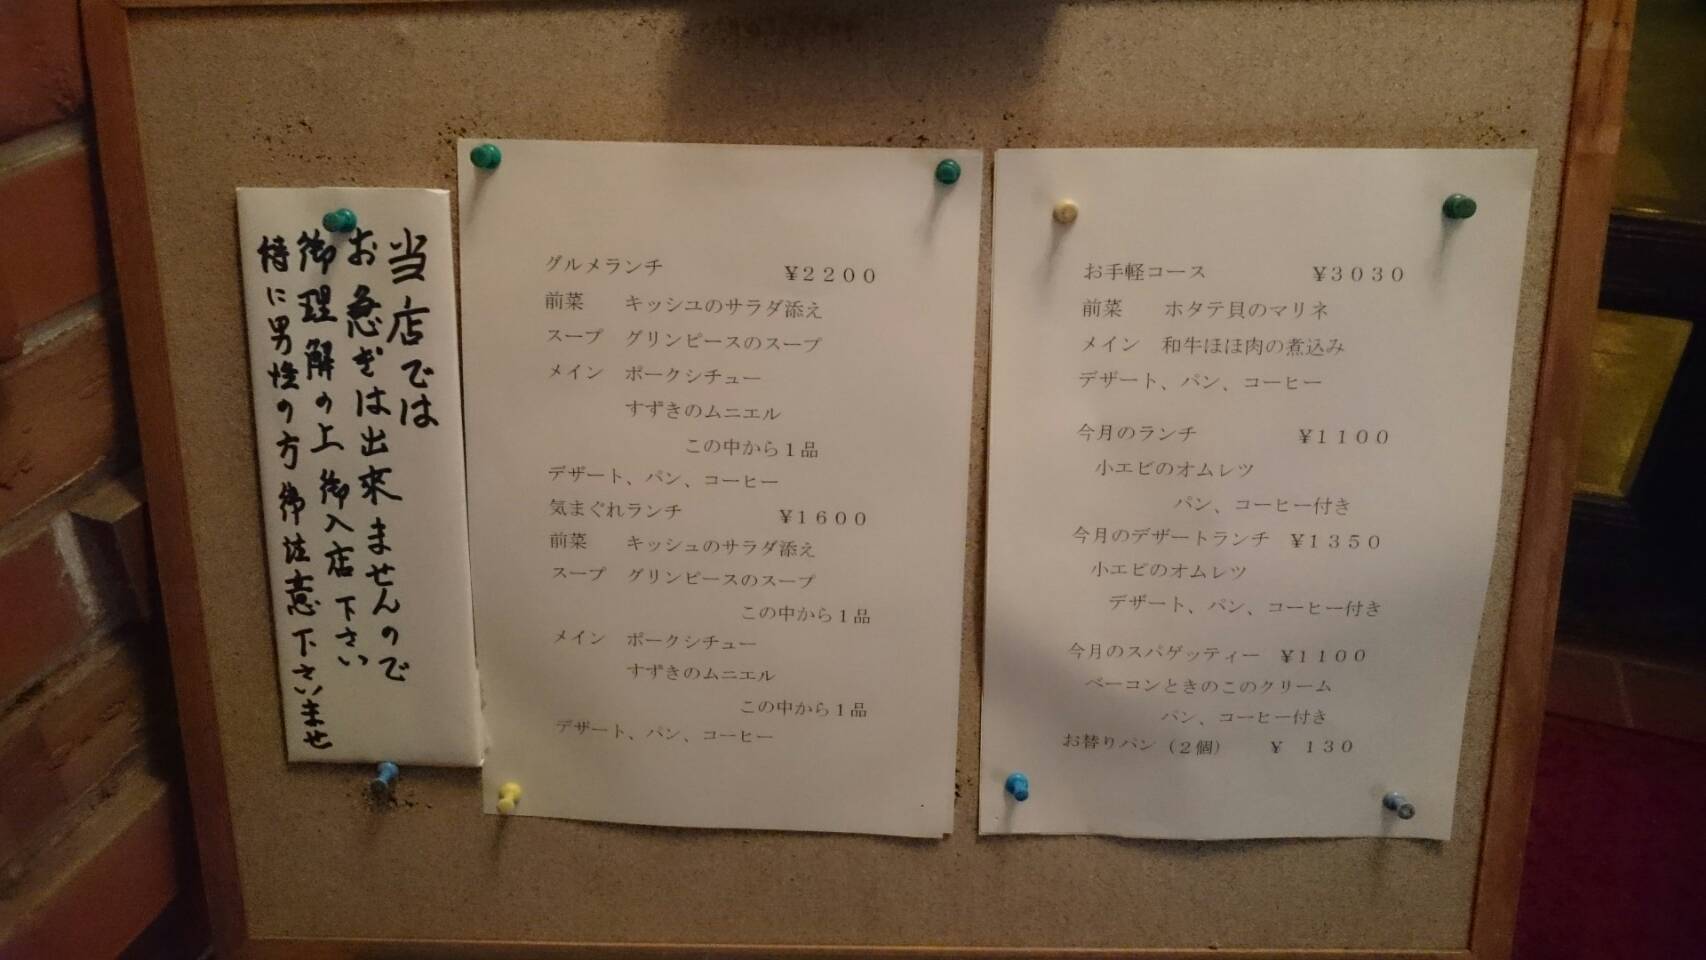 当店では
お急ぎは出来ませんので
御理解の上御入店下さい
特に男性の方御注意下さいませ
グルメランチ ¥2200
前菜 キッシユのサラダ添え
スープ グリンピースのスープ
メイン ポークシチュー
すずきのムニエル
この中から1品
デザート、パン、コーヒー
気まぐれランチ ¥1600
前菜 キッシュのサラダ添え
スープ グリンピースのスープ
この中から1品
メイン ポークシチュー
すずきのムニエル
この中から1品
デザート、パン、コーヒー
お手軽コース ¥3030
前菜 ホタテ貝のマリネ
メイン 和牛ほほ肉の煮込み
デザート、パン、コーヒー
今月のランチ ¥1100
小エビのオムレツ
パン、コーヒー付き
今月のデザートランチ ¥1350
小エビのオムレツ
デザート、パン、コーヒー付き
今月のスパゲッティー ¥1100
ベーコンときのこのクリーム
パン、コーヒー付き
お替りパン(2個) ¥ 130